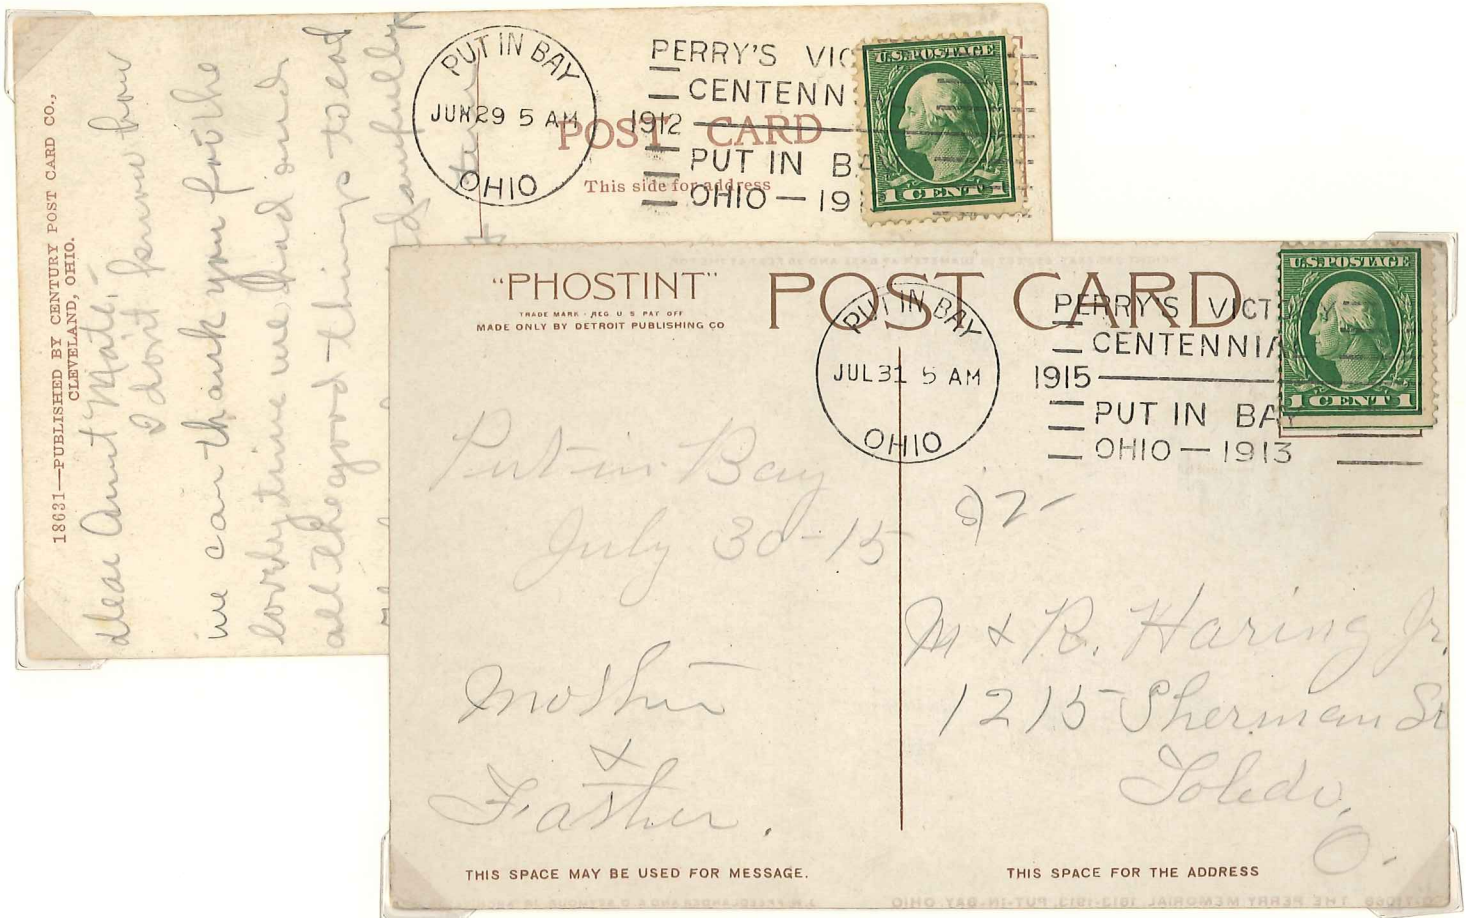 18631—PUBLISHED BY CENTURY POST CARD CO.,
CLEVELAND, OHIO.
Dear Aunt Mate,-
I don't know how
we can thank you for the
lovely time we had and
all the good things to eat
PUT IN BAY
JUN 29 5 AM
OHIO
1912
PERRY'S VIC
CENTENN
PUT IN BA
OHIO — 191
POST CARD
This side for address
U.S. POSTAGE
1 CENT 1
"PHOSTINT"
TRADE MARK - REG. U S PAT OFF
MADE ONLY BY DETROIT PUBLISHING CO
POST CARD
PUT IN BAY
JUL 31 5 AM
OHIO
1915
PERRY'S VICTORY
CENTENNIA
PUT IN BAY
OHIO — 1913
U.S. POSTAGE
1 CENT 1
Put-in-Bay
July 30-15
Mother
&
Father.
M & R. Haring Jr.
1215 Sherman St
Toledo,
O.
THIS SPACE MAY BE USED FOR MESSAGE.
THIS SPACE FOR THE ADDRESS